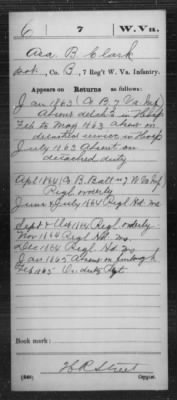 6 7 W. Va.
Asa B. Clark
, Co. B, 7 Reg't W. Va. Infantry.
Appears on Returns as follows:
Jan 1863 Co B 7 W Va Inf
Absent detach'd in Hosp
Feb to May 1863 absent on
detached service in Hosp
July 1863 Absent on
detached duty
Apl 1864 Co B Batt'n 7 W Va Inf
Regl orderly
June & July 1864 Regl Hd
Sept & Oct 1864 Regl orderly
Nov 1864 Regl Hd
Dec 1864 Regl Hd
Jan 1865 Absent on furlough
Feb 1865 On duty
Book mark:
H R Street
Copyist.